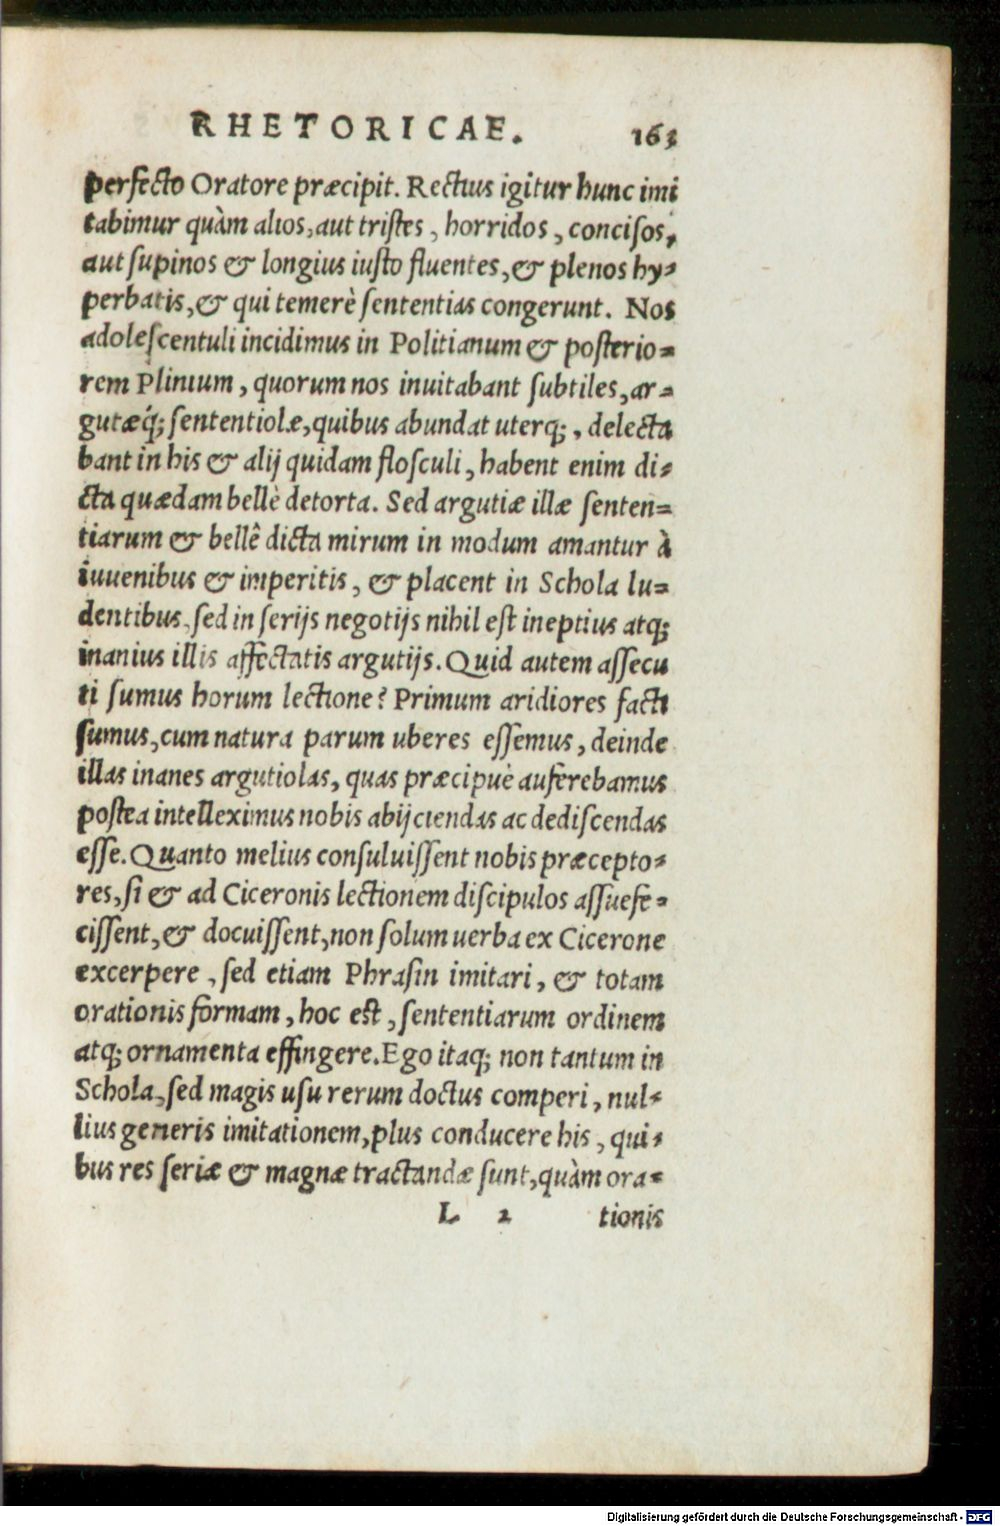 RHETORICAE. 163
perfecto Oratore præcipit. Rectius igitur hunc imi
tabimur quàm alios, aut tristes, horridos, concisos,
aut supinos & longius iusto fluentes, & plenos hy-
perbatis, & qui temerè sententias congerunt. Nos
adolescentuli incidimus in Politianum & posterio-
rem Plinium, quorum nos inuitabant subtiles, ar-
gutæq́; sententiolæ, quibus abundat uterq;, delecta
bant in his & alij quidam flosculi, habent enim di-
cta quædam bellè detorta. Sed argutiæ illæ senten-
tiarum & bellê dicta mirum in modum amantur à
iuuenibus & imperitis, & placent in Schola lu-
dentibus, sed in serijs negotijs nihil est ineptius atq;
inanius illis affectatis argutijs. Quid autem assecu
ti sumus horum lectione? Primum aridiores facti
sumus, cum natura parum uberes essemus, deinde
illas inanes argutiolas, quas præcipuè auferebamus
postea intelleximus nobis abijciendas ac dediscendas
esse. Quanto melius consuluissent nobis præcepto-
res, si & ad Ciceronis lectionem discipulos assuefe-
cissent, & docuissent, non solum uerba ex Cicerone
excerpere, sed etiam Phrasin imitari, & totam
orationis formam, hoc est, sententiarum ordinem
atq; ornamenta effingere. Ego itaq; non tantum in
Schola, sed magis usu rerum doctus comperi, nul-
lius generis imitationem, plus conducere his, qui-
bus res seriæ & magnæ tractandæ sunt, quàm ora-
L 2 tionis
Digitalisierung gefördert durch die Deutsche Forschungsgemeinschaft - DFG